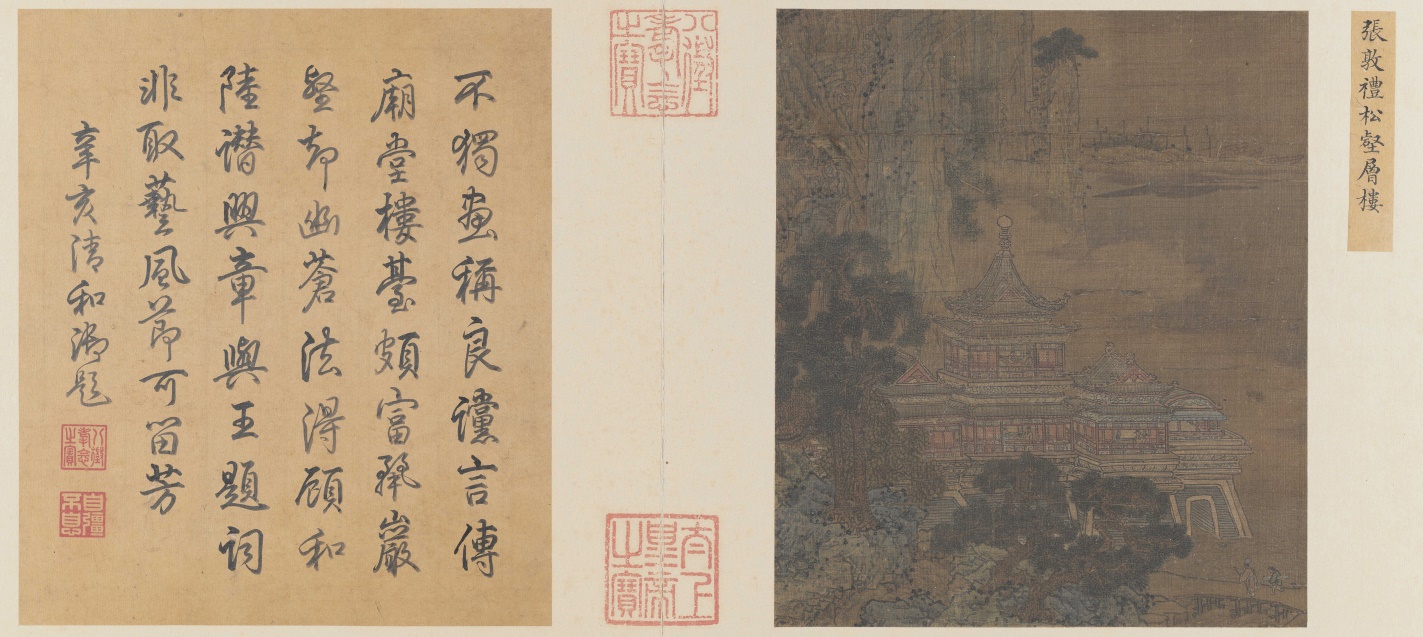 張敦禮松壑層樓
八徵耄念之寶
太上皇帝之寶
不獨畫稱良讜言傳
廟堂樓臺頗富麗巖
壑却幽蒼法得顧和
陸譖興章與王題詞
非取藝風節可留芳
辛亥清和御題
八徵耄念之寶
自彊不息